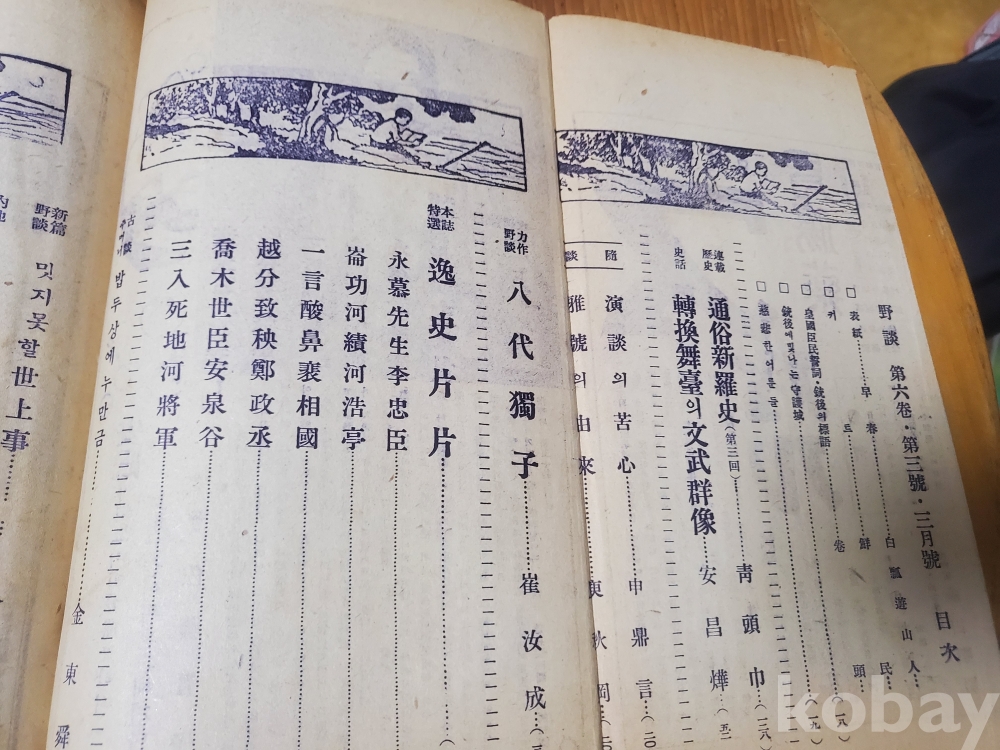 野談 第六卷・第三號・三月號 目次
□表紙 早春 白瓢遊山人
□커트 鮮民
□皇國臣民誓詞・銃後의標語 卷頭
□銃後에빛나는守護城 (一八)
□慈悲한어문들 (一九)
連載歷史 通俗新羅史(第三回) 靑頭巾(三八)
史話 轉換舞臺의文武群像 安昌燁(五二
隨談
演談의苦心 申鼎言(二〇
雅號의由來 秋岡(二〇
力作野談 八代獨子 崔汝成
本誌特選 逸史片片
永慕先生李忠臣
崙功河績河浩亭
一言酸鼻裵相國
越分致秧鄭政丞
喬木世臣安泉谷
三入死地河將軍
古談 밥두상에누만금 金東舜
新篇野談 밋지못할世上事
kobay